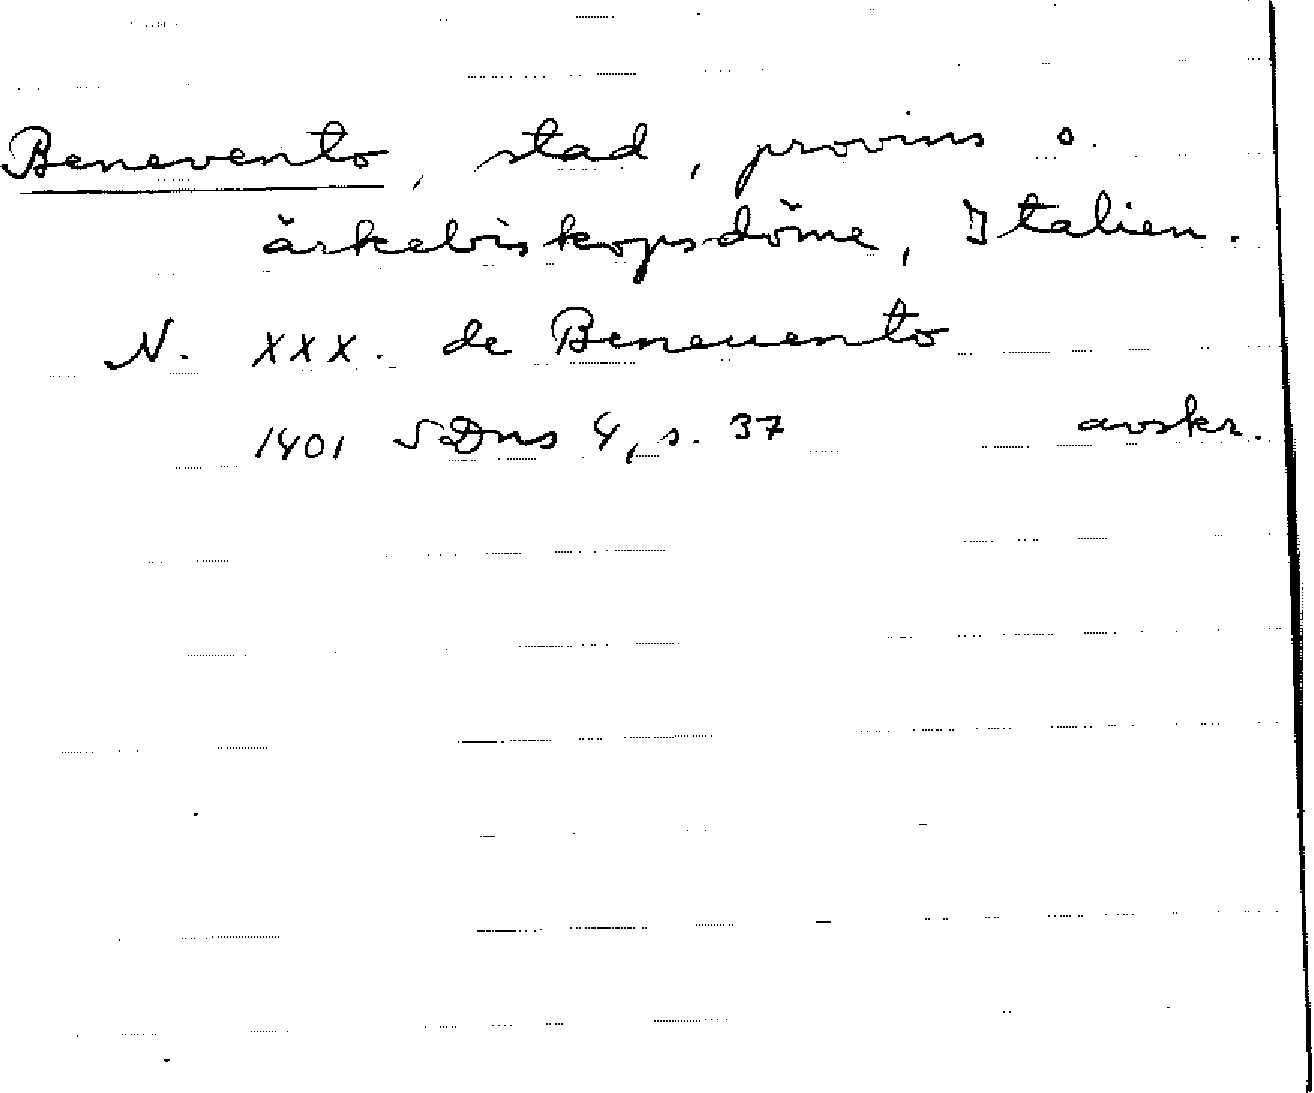 Benevento, stad, provins o.
ärkebiskopsdöme, Italien.
N. XXX. de Beneuento
1401 SDns 4, s. 37 avskr.